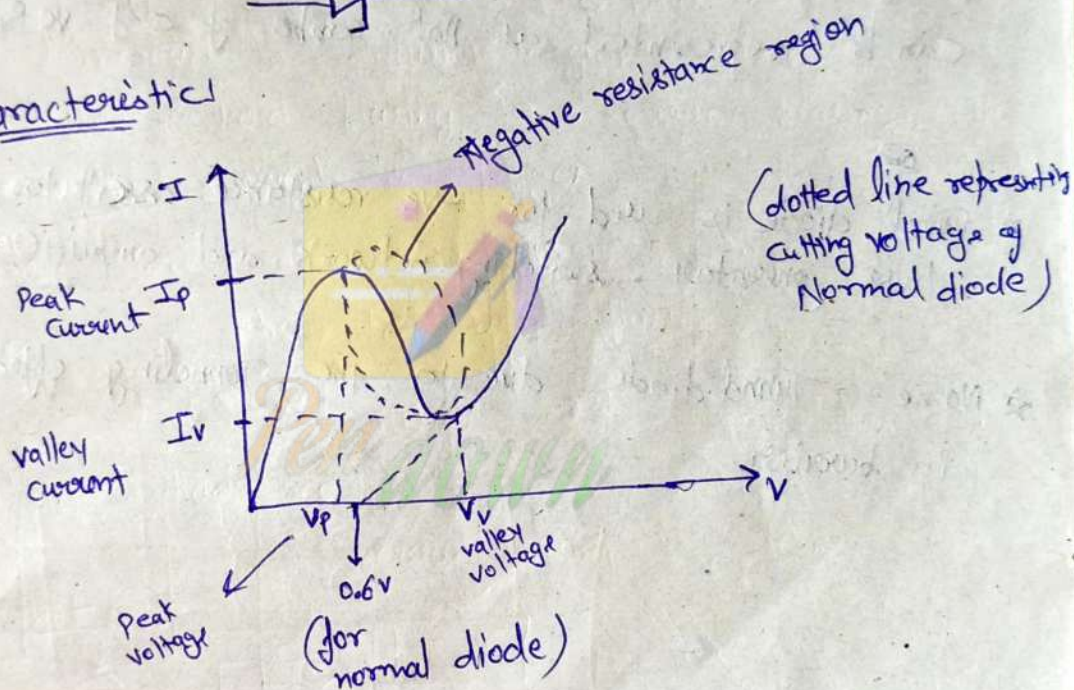 racteristics
Negative resistance region
I
(dotted line representing
cutting voltage of
Normal diode)
Peak
Current
Ip
Iv
valley
current
Pen
down
V
Vp
Vv
valley
voltage
0.6v
peak
voltage
(for
normal diode)